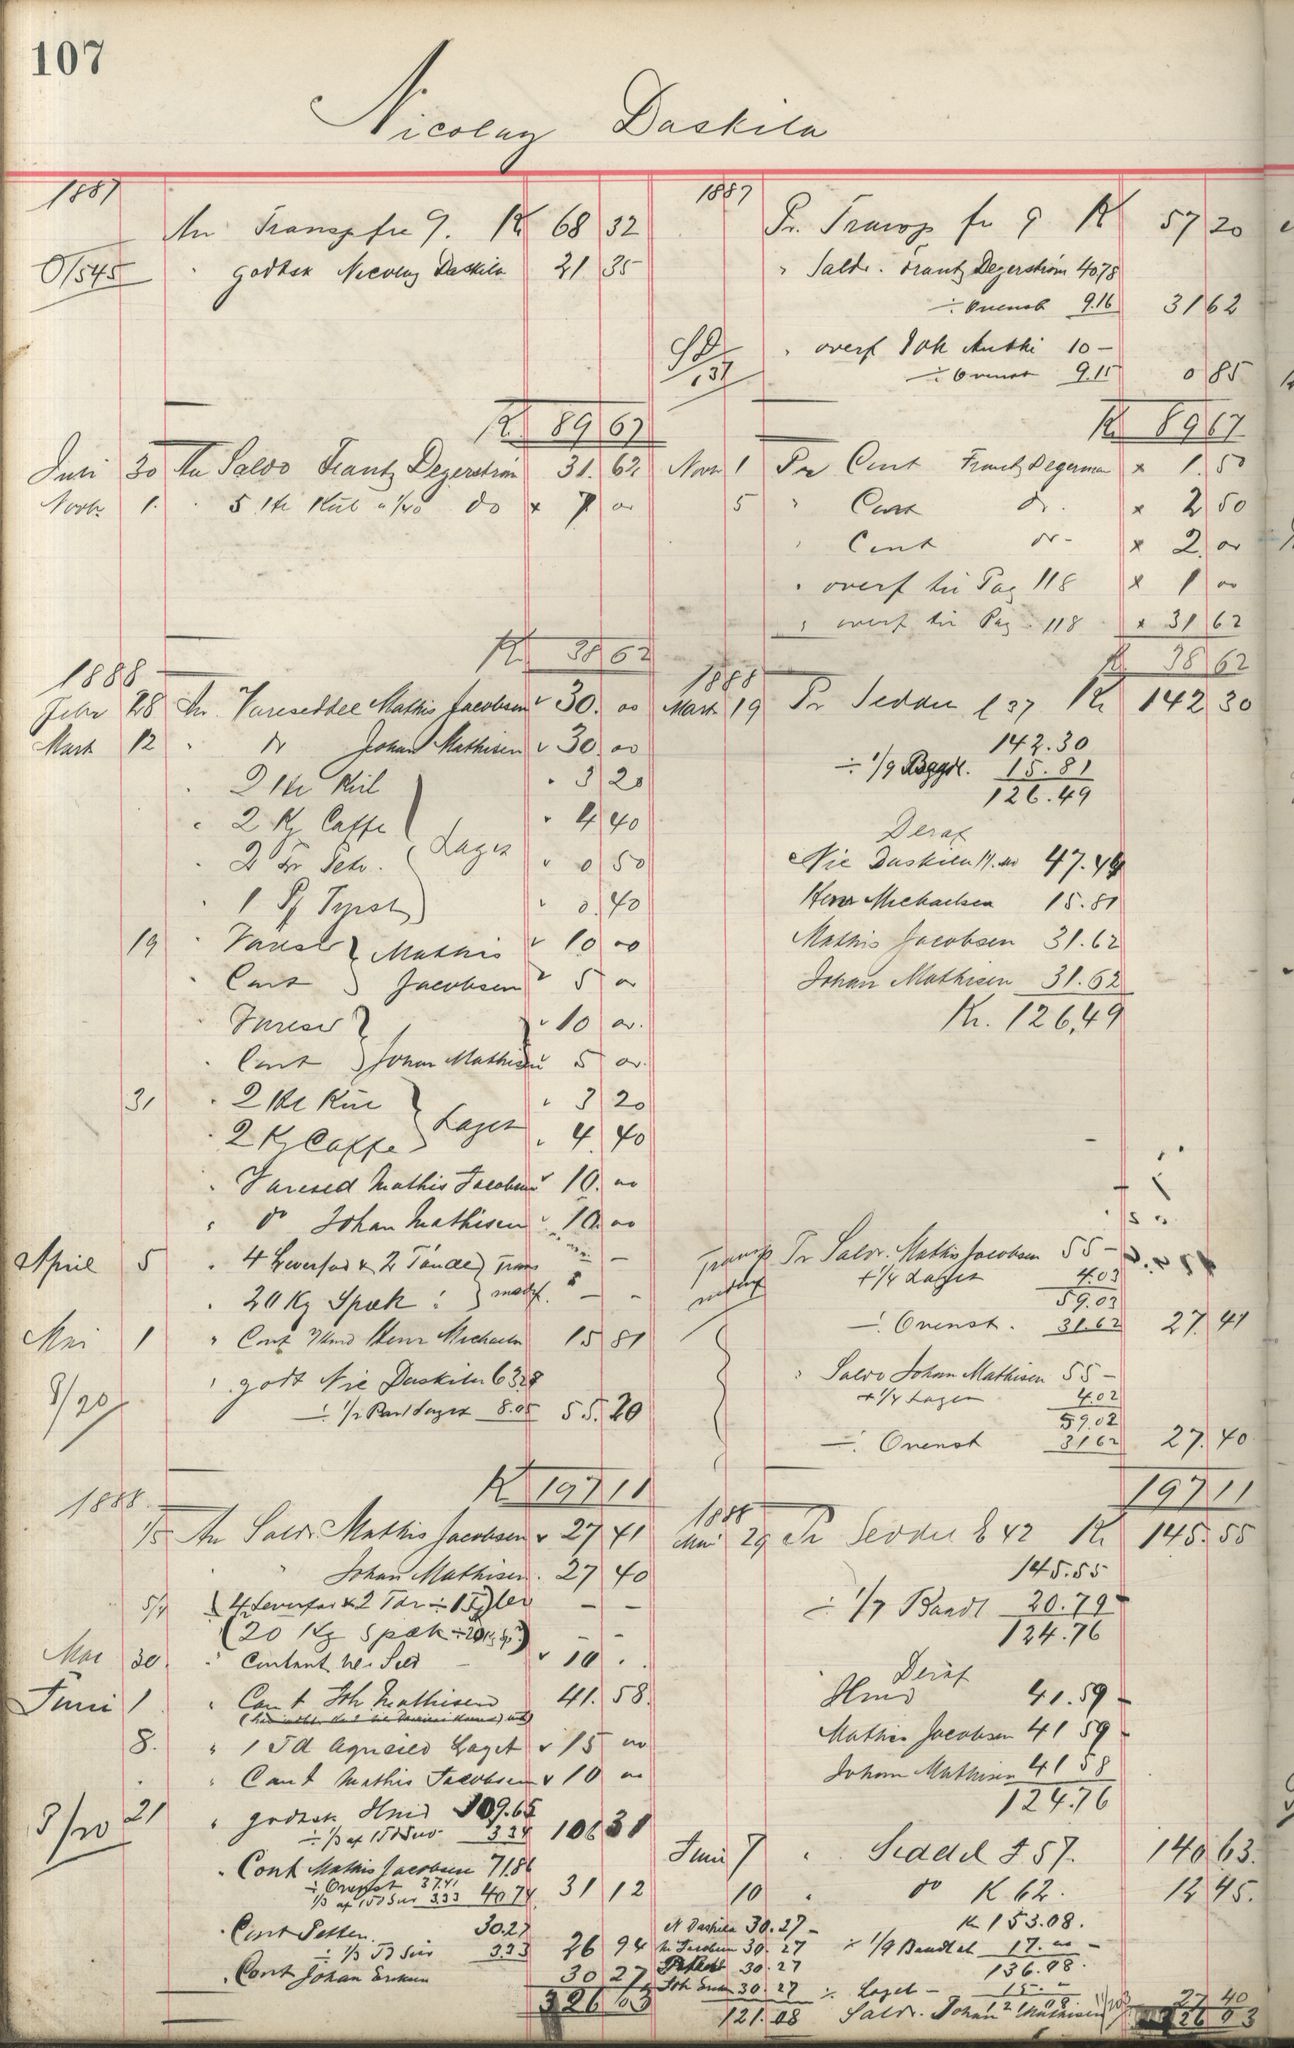 107
Nicolay Daskila
1887
An Transp fra 9. Kr 68 32
O/545 " godtsk Nicolay Daskila 21 35
K. 89 67
Juni 30 An Saldo Frantz Degerström 31. 62
Novbr 1. " 5 do x 7 00
K. 38 62
1888
Febr 28 An Vareseddel Mathis Jacobsen 30. 00
Mart 12 " do Johan Mathisen 30. 00
" 2 3 20
" 2 Kg Caffe 4 40
Laget
" 2 0 50
" 1 0. 40
19 " Varesed 10 00
Mathis Jacobsen
" Cont 5 00
" Varesed 10 00
" Cont Johan Mathisen 5 00
31 " 2 3 20
" 2 Kg Caffe Laget 4. 40
" Varesed Mathis Jacobsen 10. 00
" do Johan Mathisen 10. 00
April 5 " 4 Leverfad & 2 Tønder Trans — —
" 20 Kg Spæk nedf. — —
Mai 1 " Cont Henr Michaelsen 15 81
8/20 " godt Nic Daskila 63.28
÷ 1/2 Laget 8.05 55. 20
K 197 11
1888.
1/5 An Saldo Mathis Jacobsen 27 41
" Johan Mathisen. 27 40
5/4 4 Leverfad & 2 Tør — —
(20 Kg Spæk ÷ 20 Kg — —
Mai 30. " Contant 10
Juni 1 " Cont Joh Mathisen 41. 58.
8. " 1 Td Laget 15 00
" Cant Mathis Jacobsen 10 00
8/20 21 " godtsk Hmd 109.65
÷ 1/3 af 1 Td 3.34 106 31
" Cont Mathis Jacobsen 71.86
÷ Ovenst 37.41
1/3 af 1 Td 3.33 40 74 31 12
" Cont Petter 30.27
÷ 1/3 Td 3.33 26 94
" Cont Johan 30 27
326 03
1887
Pr. Transp fra 9 K 57 20
" Saldo. Frantz Degerström 40.78
÷ Ovenst 9.16 31 62
137 " overf Joh 10 —
÷ Ovenst 9.15 0 85
K 89 67
Novbr 1 Pr Cont Frantz Degerman x 1. 50
5 " Cont do. x 2 50
" Cont do - x 2. 00
" overf til Pag 118 x 1 00
" overf til Pag. 118 x 31 62
K 38 62
1888
Mart 19 Pr Seddel l 37 Kr 142 30
142.30
÷ 1/9 15.81
126.49
Deraf
Nic Daskila 47.44
Henr Michaelsen 15.81
Mathis Jacobsen 31.62
Johan Mathisen 31.62
Kr. 126,49
Transp nedf Pr Saldo. Mathis Jacobsen 55 —
+ 1/4 Laget 4.03
59.03
÷ Ovenst. 31.62 27. 41
" Saldo Johan Mathisen 55 —
+ 1/4 Laget 4.02
59.02
÷ Ovenst 31 62 27. 40
197 11
1888
Mai 29 Pr Seddel 42 Kr 145. 55
145.55
÷ 1/7 Baadl 20.79
124.76
Deraf
Hmd 41.59
Mathis Jacobsen 41 59
Johan Mathisen 41 58
124.76
Juni 7 " Seddel 57. 140 63.
10 " do K 62. 12 45.
Kr 153.08.
N Daskila 30.27 ÷ 1/9 Baadl 17.00
M Jacobsen 30.27 136.08.
30.27
Joh 30.27 ÷ Laget 15.
121.08 121.08
Saldo. Johan Mathisen 27 40
326 03